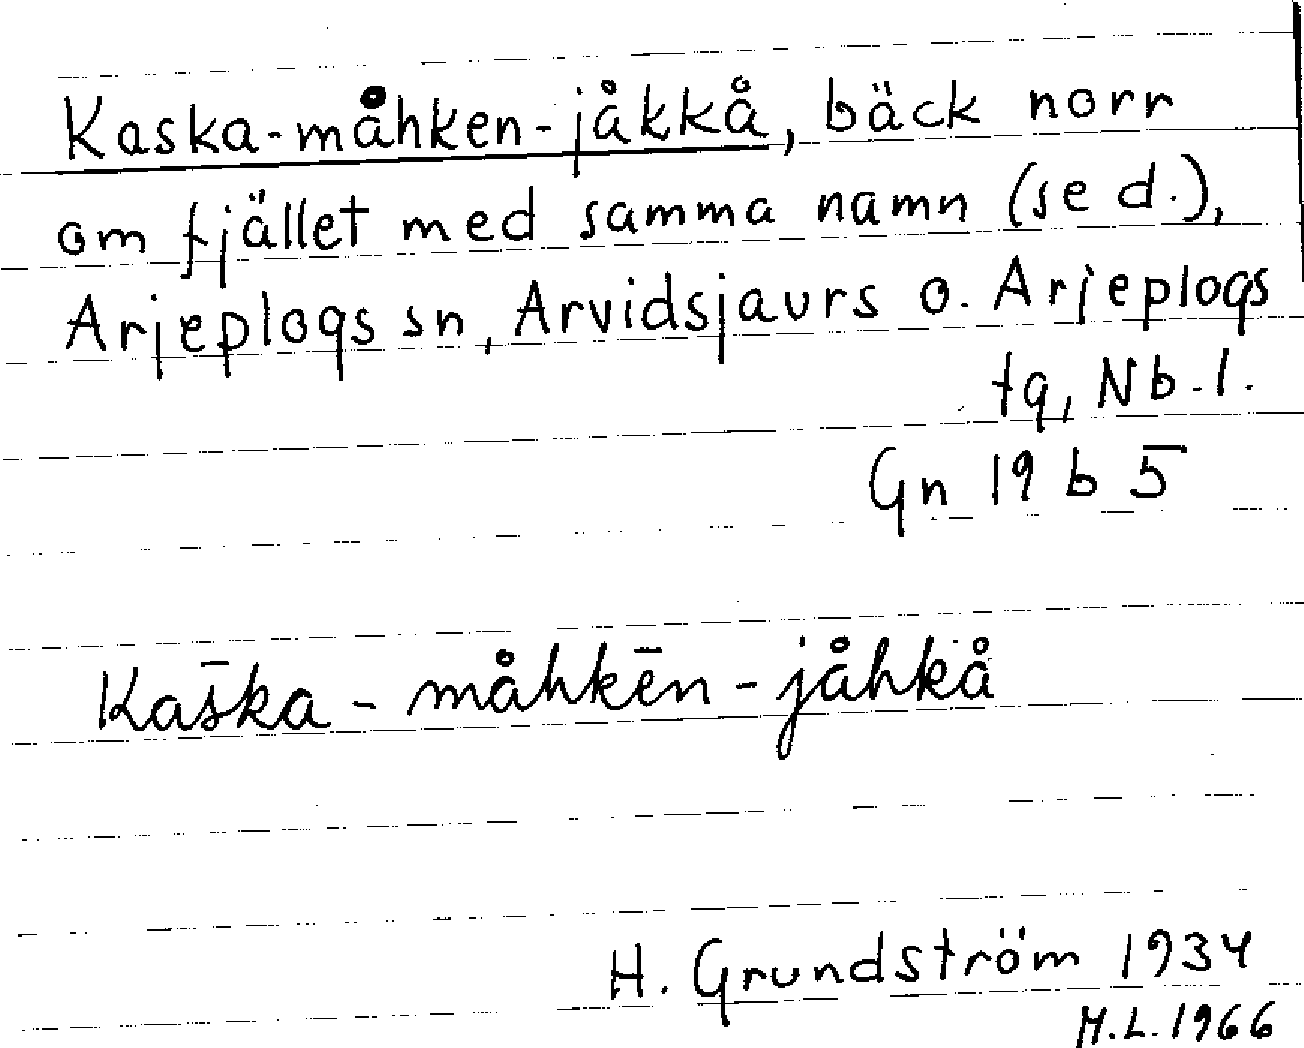 Kaska-måhken-jåkkå, bäck norr
om fjället med samma namn (se d.),
Arjeplogs sn, Arvidsjaurs o. Arjeplogs
tg, Nb. l.
Gn 19 b 5
Kas̄ka - måhkēn - jåhkå
H. Grundström 1934
M.L. 1966